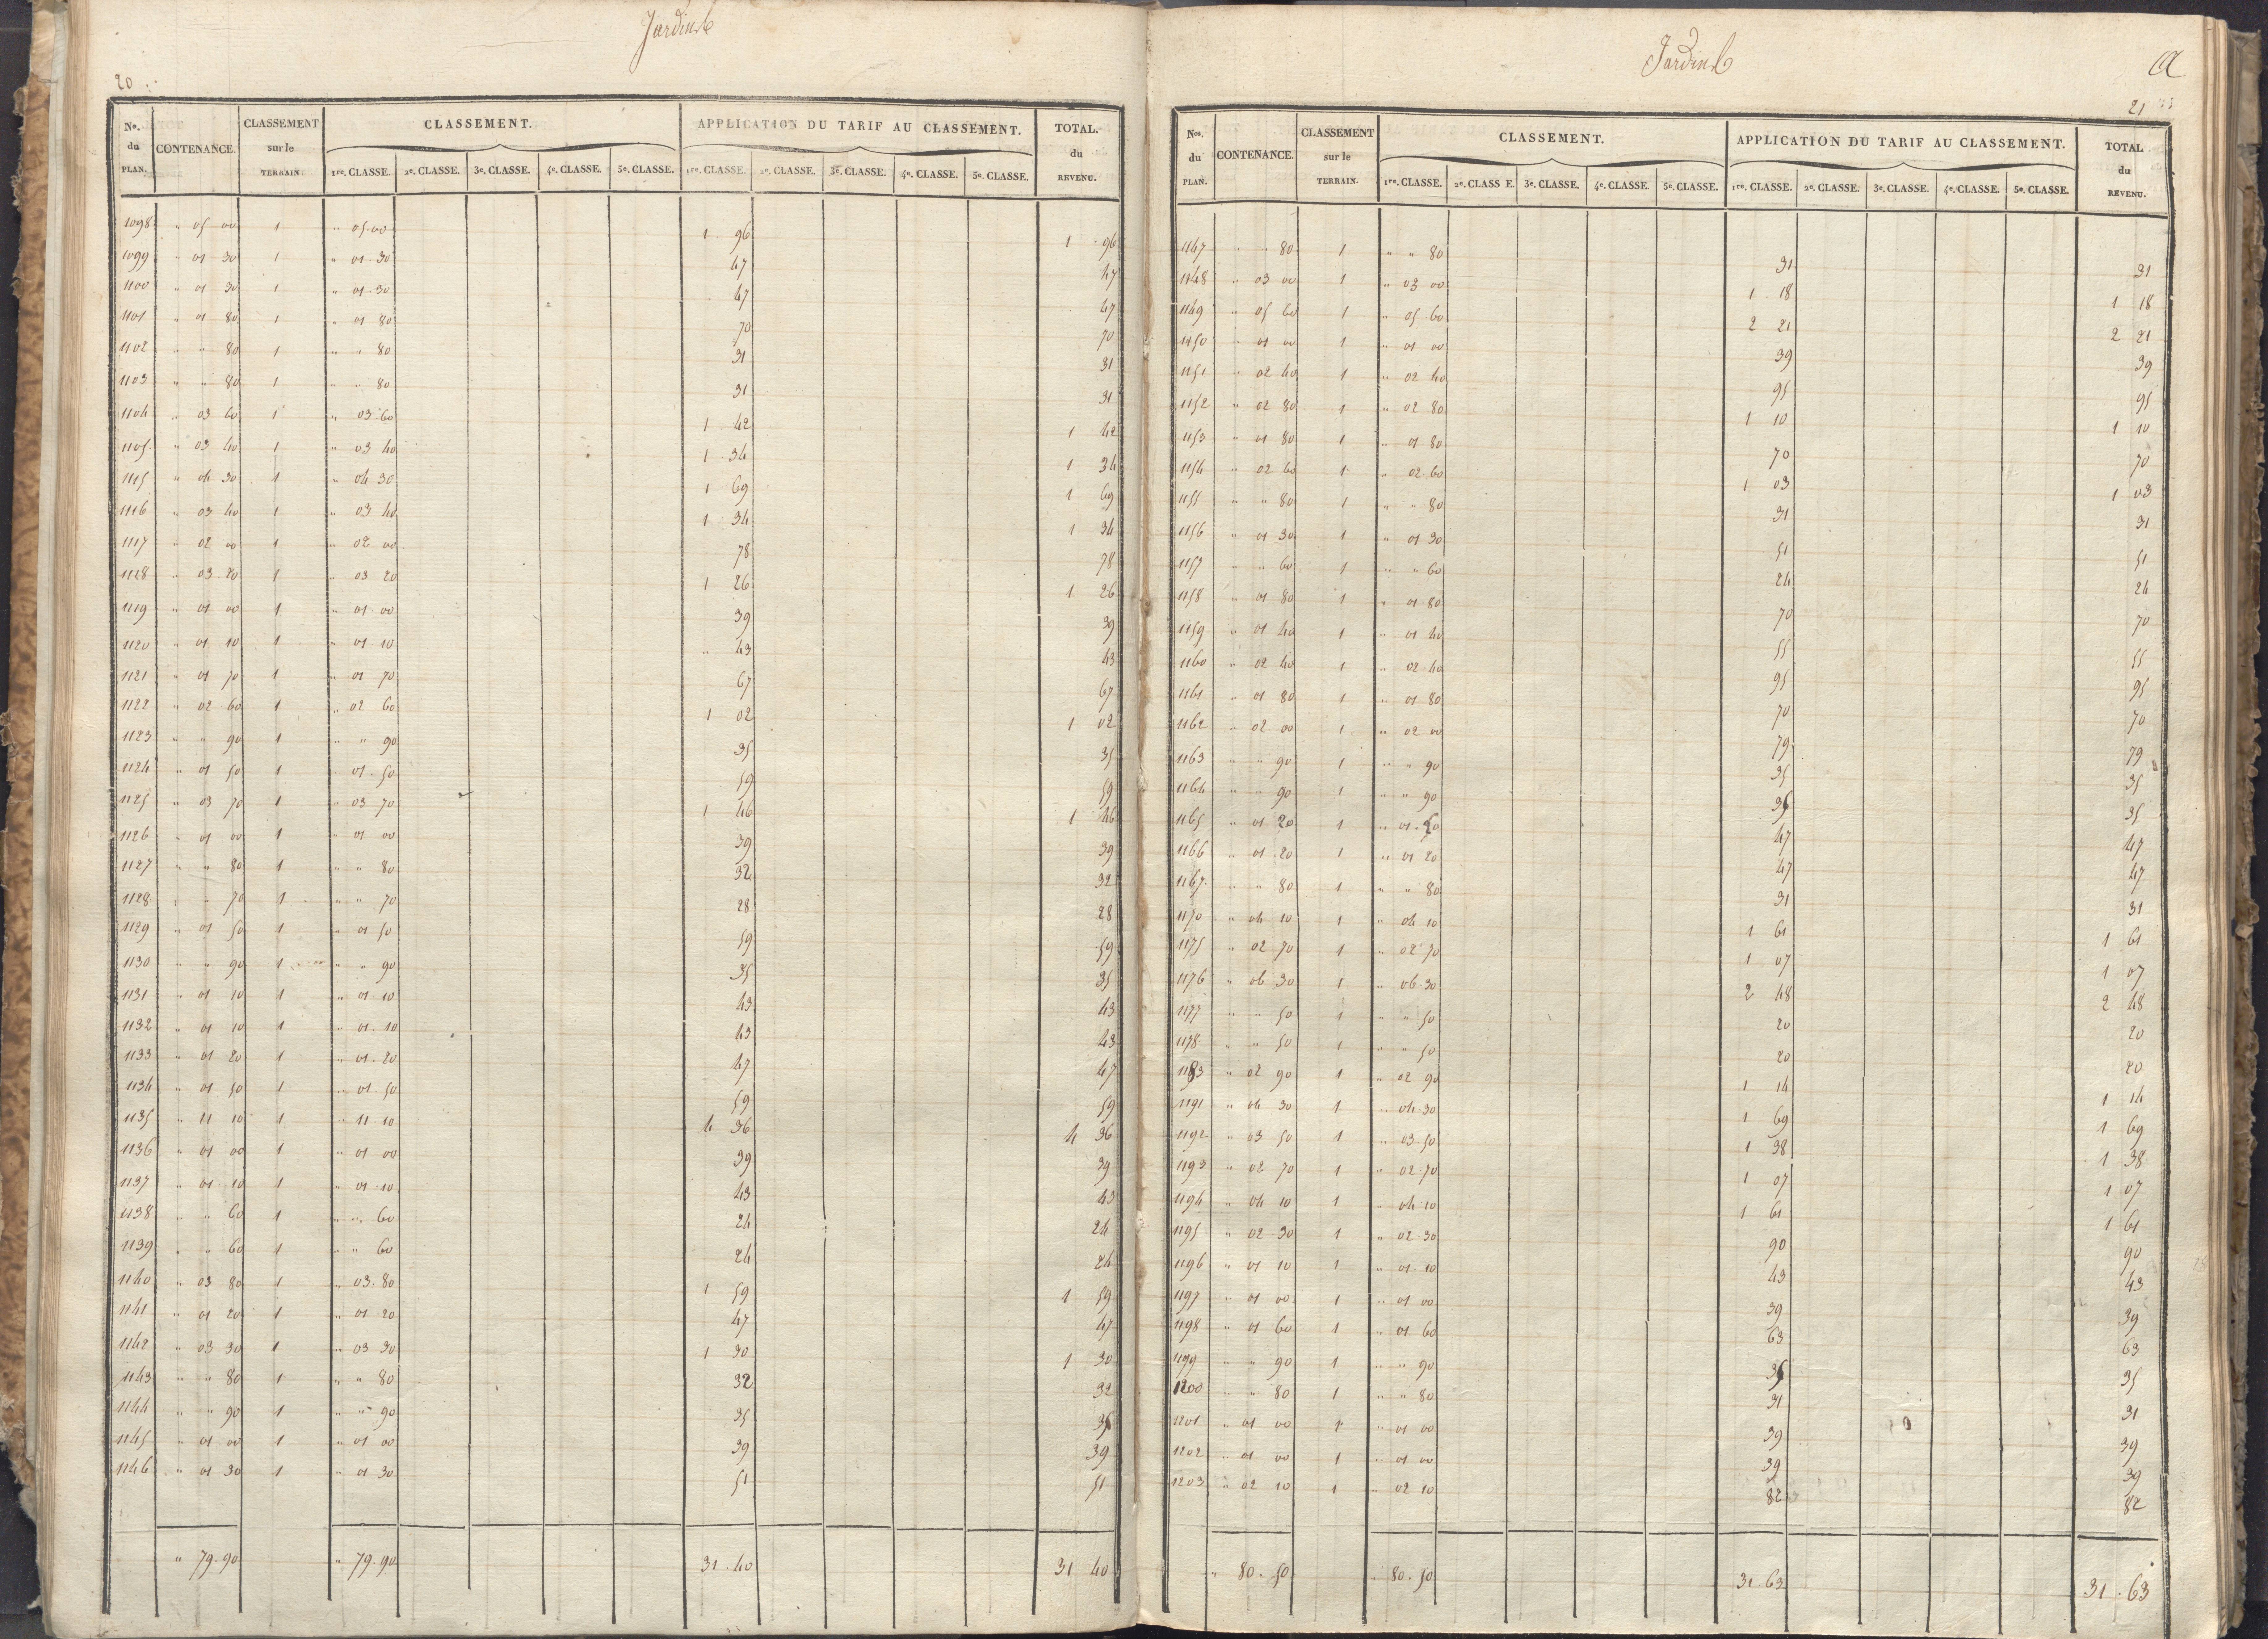 Jardins
20
No. du PLAN. CONTENANCE. CLASSEMENT sur le TERRAIN. CLASSEMENT. APPLICATION DU TARIF AU CLASSEMENT. TOTAL. du REVENU.
1re. CLASSE. 2e. CLASSE. 3e. CLASSE. 4e. CLASSE. 5e. CLASSE. 1re. CLASSE. 2e. CLASSE. 3e. CLASSE. 4e. CLASSE. 5e. CLASSE.
1098 " 05 00 1 " 05 00 1 96 1 96
1099 " 01 30 1 " 01 30 47 47
1100 " 01 30 1 " 01 30 47 47
1101 " 01 80 1 " 01 80 70 70
1102 " " 80 1 " " 80 31 31
1103 " " 80 1 " " 80 31 31
1104 " 03 60 1 " 03 60 1 42 1 42
1105 " 03 40 1 " 03 40 1 34 1 34
1115 " 04 30 1 " 04 30 1 69 1 69
1116 " 03 40 1 " 03 40 1 34 1 34
1117 " 02 00 1 " 02 00 78 78
1128 " 03 20 1 " 03 20 1 26 1 26
1119 " 01 00 1 " 01 00 39 39
1120 " 01 10 1 " 01 10 " 43 43
1121 " 01 70 1 " 01 70 67 67
1122 " 02 60 1 " 02 60 1 02 1 02
1123 " " 90 1 " " 90 35 35
1124 " 01 50 1 " 01 50 59 59
1125 " 03 70 1 " 03 70 1 46 1 46
1126 " 01 00 1 " 01 00 39 39
1127 " " 80 1 " " 80 32 32
1128 " " 70 1 " " 70 28 28
1129 " 01 50 1 " 01 50 59 59
1130 " " 90 1 " " 90 35 35
1131 " 01 10 1 " 01 10 43 43
1132 " 01 10 1 " 01 10 43 43
1133 " 01 20 1 " 01 20 47 47
1134 " 01 50 1 " 01 50 59 59
1135 " 11 10 1 " 11 10 4 36 4 36
1136 " 01 00 1 " 01 00 39 39
1137 " 01 10 1 " 01 10 43 43
1138 " " 60 1 " " 60 24 24
1139 " " 60 1 " " 60 24 24
1140 " 03 80 1 " 03 80 1 59 1 59
1141 " 01 20 1 " 01 20 47 47
1142 " 03 30 1 " 03 30 1 30 1 30
1143 " " 80 1 " " 80 32 32
1144 " " 90 1 " " 90 35 35
1145 " 01 00 1 " 01 00 39 39
1146 " 01 30 1 " 01 30 51 51
" 79.90 " 79.90 31.40 31 40
Jardins
21
Nos. du PLAN. CONTENANCE. CLASSEMENT sur le TERRAIN. CLASSEMENT. APPLICATION DU TARIF AU CLASSEMENT. TOTAL du REVENU.
1re. CLASSE. 2e. CLASS E. 3e. CLASSE. 4e. CLASSE. 5e. CLASSE. 1re. CLASSE. 2e. CLASSE. 3e. CLASSE. 4e. CLASSE. 5e. CLASSE.
1147 " " 80 1 " " 80 31 31
1148 " 03 00 1 " 03 00 1 18 1 18
1149 " 05 60 1 " 05 60 2 21 2 21
1150 " 01 00 1 " 01 00 39 39
1151 " 02 40 1 " 02 40 95 95
1152 " 02 80 1 " 02 80 1 10 1 10
1153 " 01 80 1 " 01 80 70 70
1154 " 02 60 1 " 02 60 1 03 1 03
1155 " " 80 1 " " 80 31 31
1156 " 01 30 1 " 01 30 51 51
1157 " " 60 1 " " 60 24 24
1158 " 01 80 1 " 01 80 70 70
1159 " 01 40 1 " 01 40 55 55
1160 " 02 40 1 " 02 40 95 95
1161 " 01 80 1 " 01 80 70 70
1162 " 02 00 1 " 02 00 79 79
1163 " " 90 1 " " 90 35 35
1164 " " 90 1 " " 90 35 35
1165 " 01 20 1 " 01 20 47 47
1166 " 01 20 1 " 01 20 47 47
1167 " " 80 1 " " 80 31 31
1170 " 04 10 1 " 04 10 1 61 1 61
1175 " 02 70 1 " 02 70 1 07 1 07
1176 " 06 30 1 " 06 30 2 48 2 48
1177 " " 50 1 " " 50 20 20
1178 " " 50 1 " " 50 20 20
1183 " 02 90 1 " 02 90 1 14 1 14
1191 " 04 30 1 " 04 30 1 69 1 69
1192 " 03 50 1 " 03 50 1 38 1 38
1193 " 02 70 1 " 02 70 1 07 1 07
1194 " 04 10 1 " 04 10 1 61 1 61
1195 " 02 30 1 " 02 30 90 90
1196 " 01 10 1 " 01 10 43 43
1197 " 01 00 1 " 01 00 39 39
1198 " 01 60 1 " 01 60 63 63
1199 " " 90 1 " " 90 35 35
1200 " " 80 1 " " 80 31 31
1201 " 01 00 1 " 01 00 39 39
1202 " 01 00 1 " 01 00 39 39
1203 " 02 10 1 " 02 10 82 82
" 80.50 " 80.50 31.63 31.63